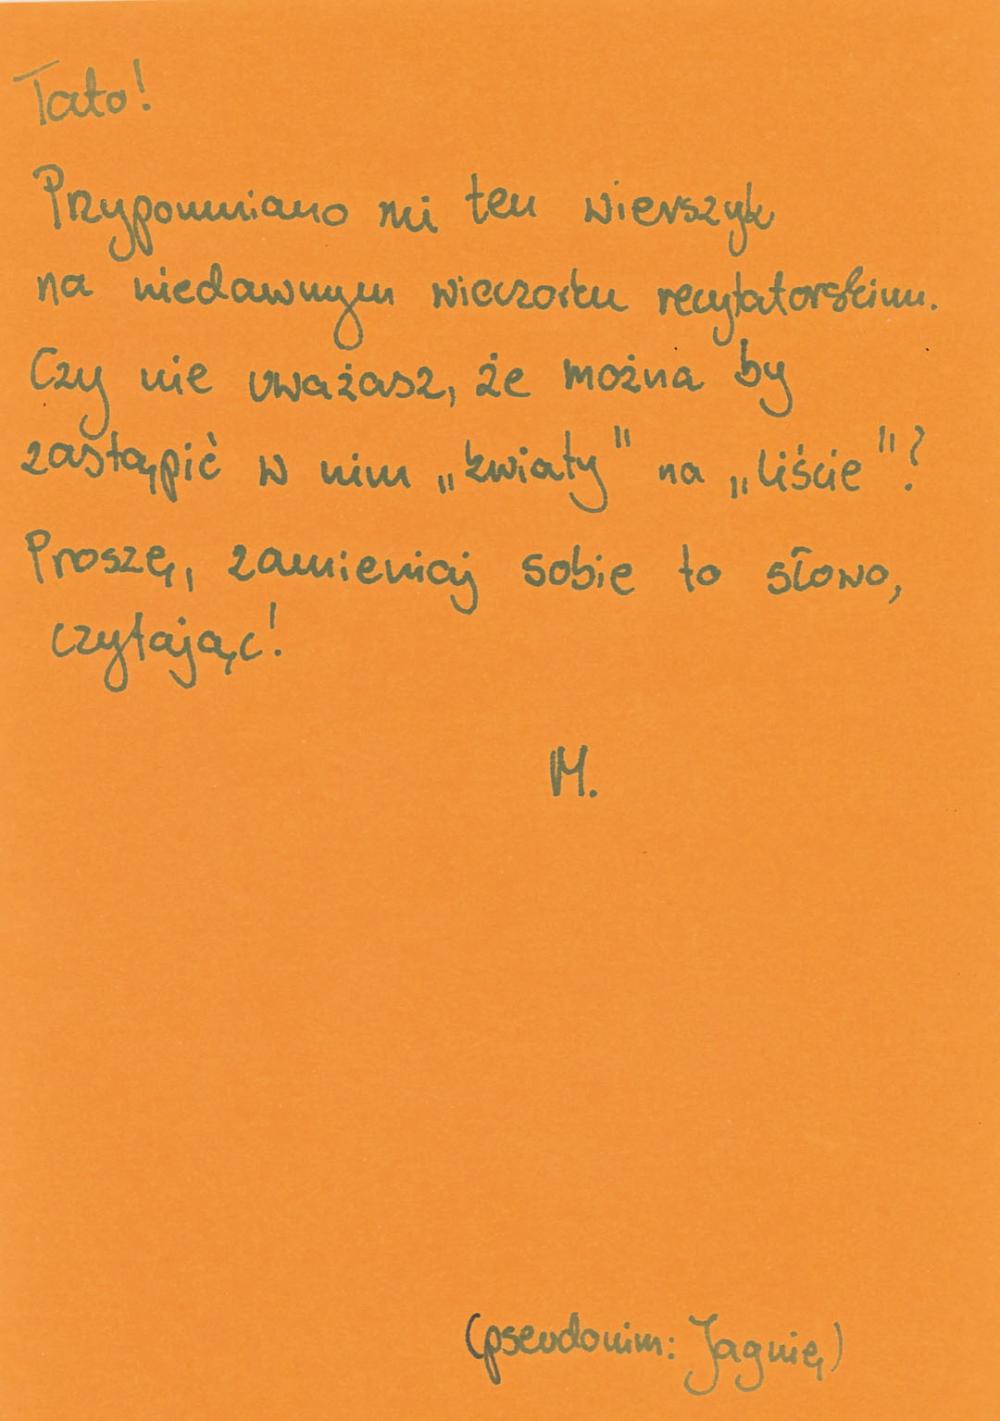 Tato!
Przypomniano mi ten wierszyk
na niedawnym wieczorku recytatorskim.
Czy nie uważasz, że można by
zastąpić w nim „kwiaty" na „liście"?
Proszę, zamieniaj sobie to słowo,
czytając!
M.
(pseudonim: Jagnię)